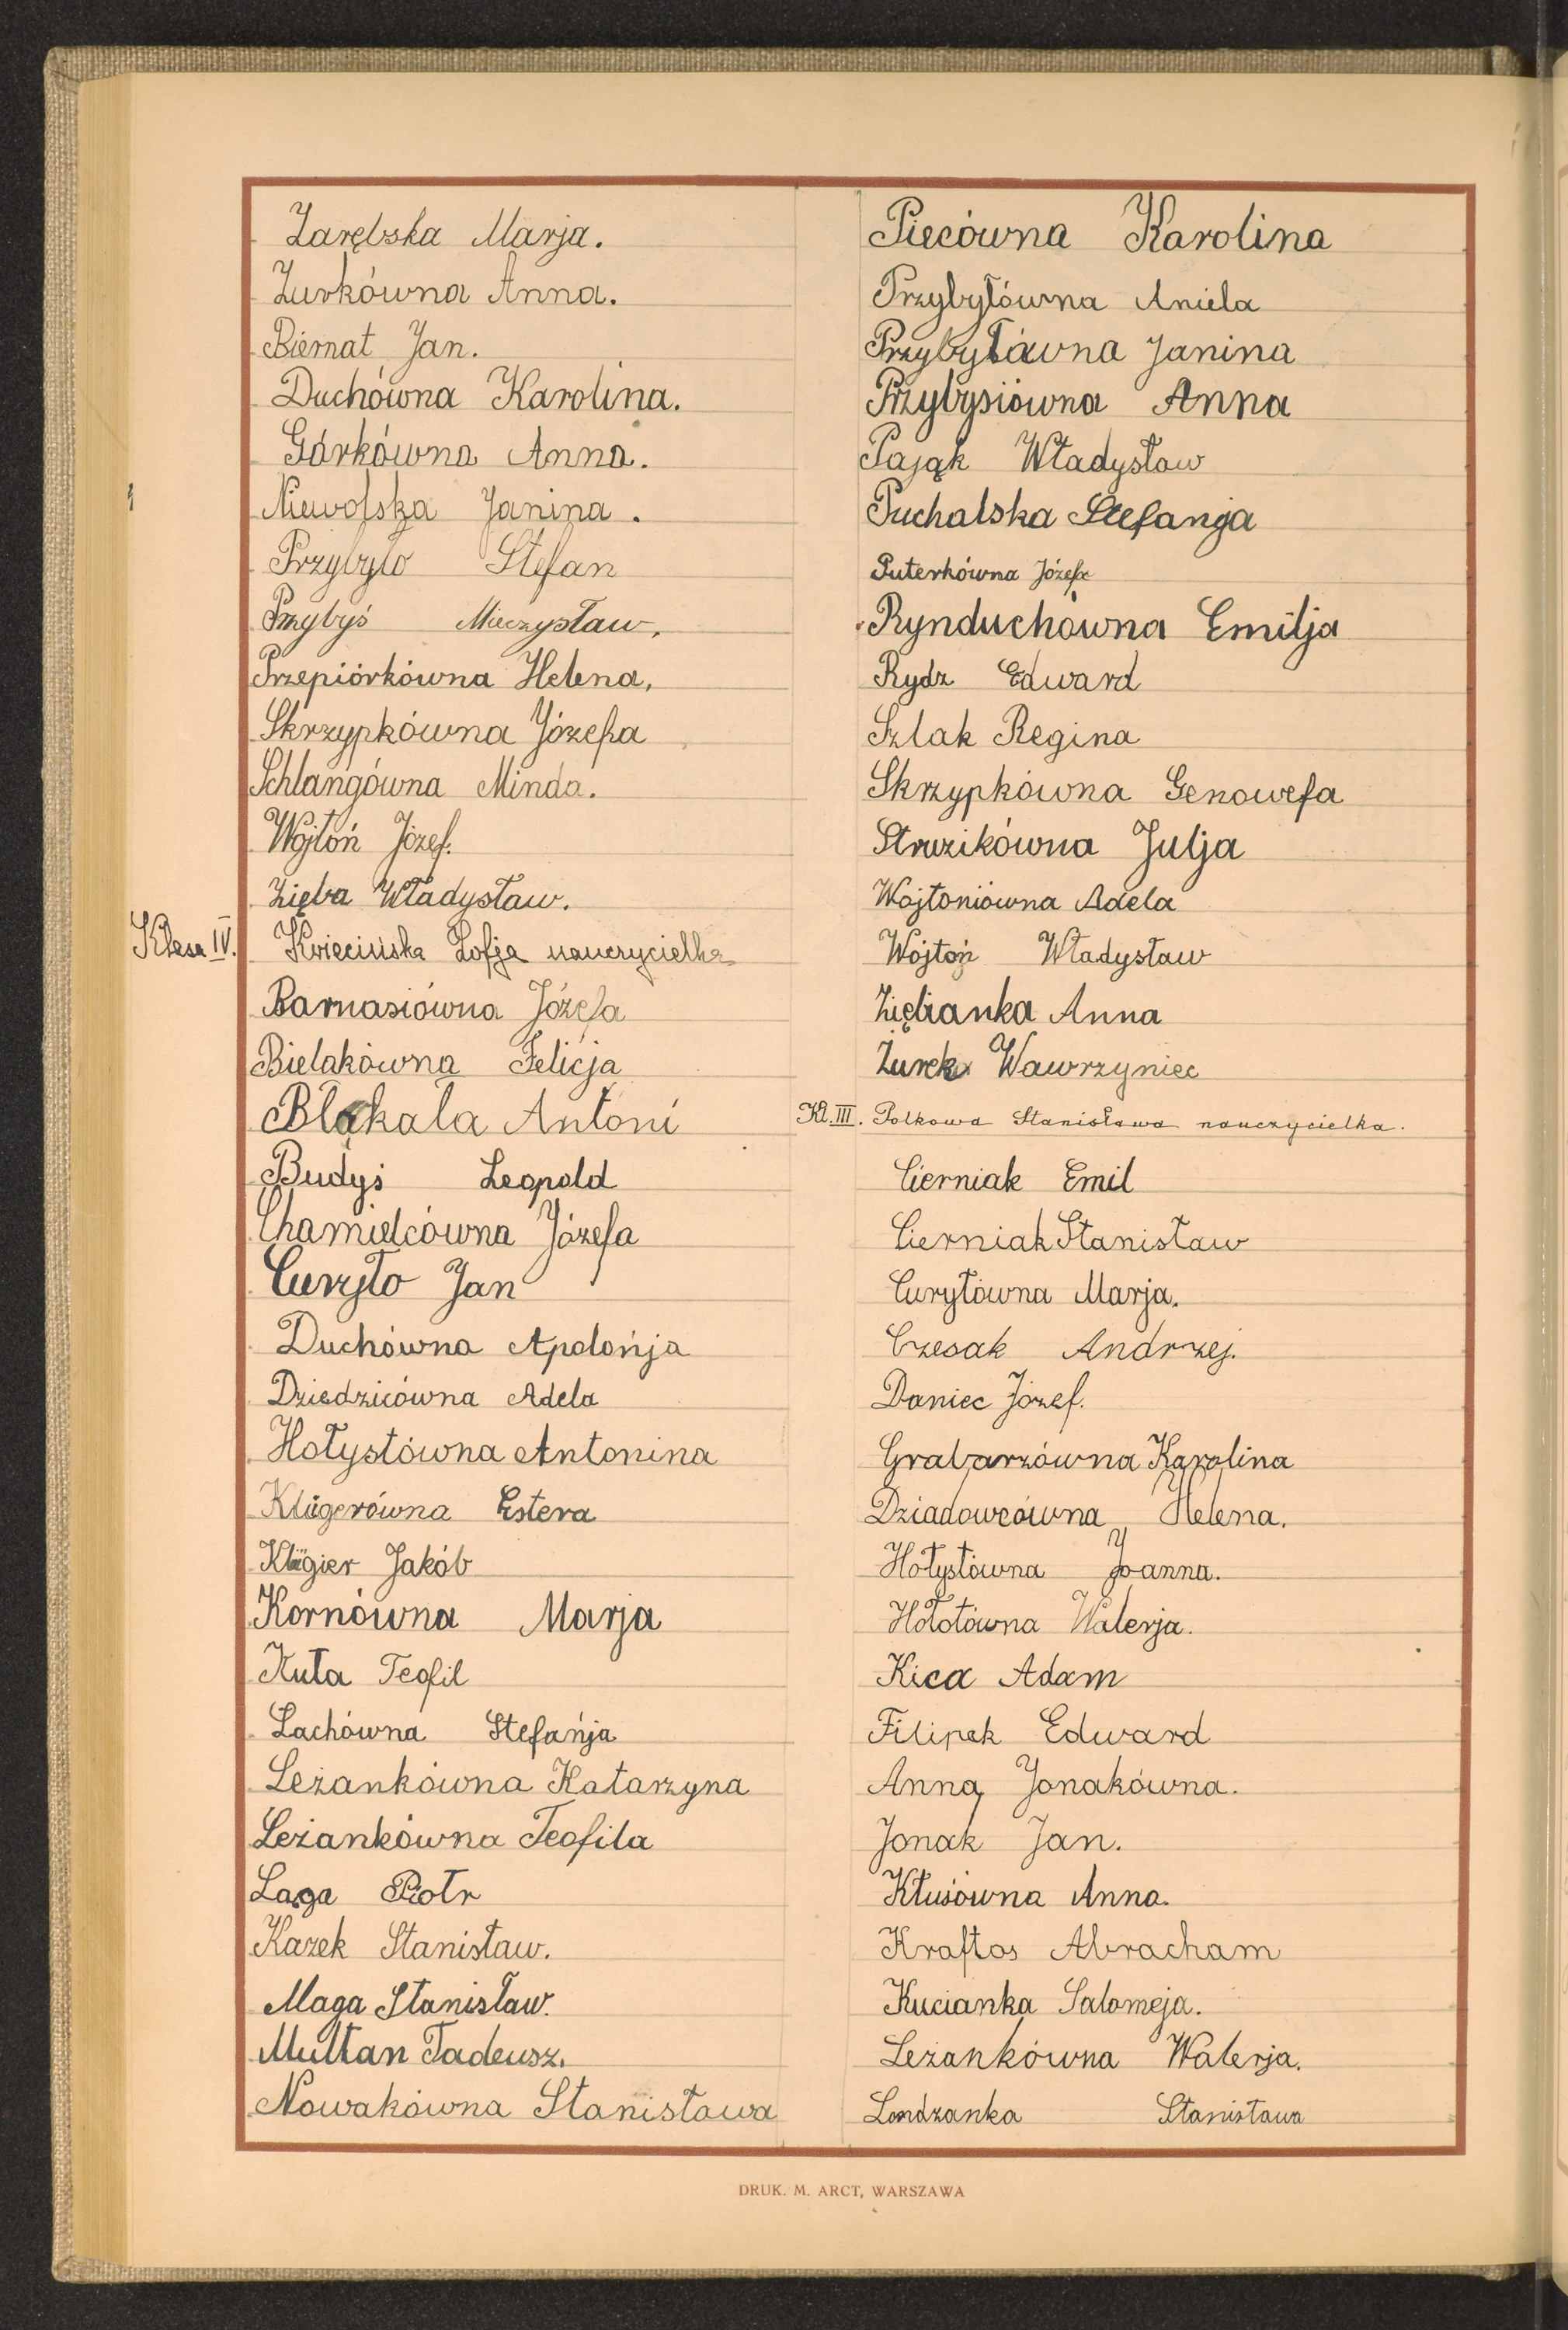 Zarębska Marja.
Żurkówna Anna.
Biernat Jan.
Duchówna Karolina.
Górkówna Anna.
Niewolska Janina.
Przybyło Stefan
Przybyś Mieczysław.
Przepiórkówna Helena,
Skrzypkówna Józefa
Schlangówna Minda.
Wojtoń Józef.
Zięba Władysław.
Klasa IV. Kwiecińska Zofja nauczycielka
Barnasiówna Józefa
Bielakówna Felicja
Błąkała Antoni
Budyś Leopold
Chamielcówna Józefa
Curyło Jan
Duchówna Apolońja
Dziedzicówna Adela
Hołystówna Antonina
Klügerówna Estera
Klügier Jakób
Kornówna Marja
Kuta Teofil
Lachówna Stefańja
Leżankówna Katarzyna
Leżankówna Teofila
Laga Piotr
Kazek Stanisław.
Maga Stanisław.
Multan Tadeusz.
Nowakówna Stanisława
Piecówna Karolina
Przybyłówna Aniela
Przybyłówna Janina
Przybysiówna Anna
Pająk Władysław
Puchalska Stefanja
Puterkówna Józefa
Rynduchówna Emilja
Rydz Edward
Szlak Regina
Skrzypkówna Genowefa
Struzikówna Julja
Wojtoniówna Adela
Wójtoń Władysław
Ziębianka Anna
Żurek Wawrzyniec
Kl. III. Polkowa Stanisława nauczycielka.
Cierniak Emil
Cierniak Stanisław
Curyłówna Marja.
Czesak Andrzej.
Daniec Józef.
Grabarzówna Karolina
Dziadowcówna Helena.
Hołystówna Joanna.
Hołotówna Walerja.
Kica Adam
Filipek Edward
Anna Jonakówna.
Jonak Jan.
Kłusówna Anna.
Kraftos Abracham
Kucianka Salomeja.
Leżankówna Walerja.
Londzanka Stanisława
DRUK. M. ARCT, WARSZAWA